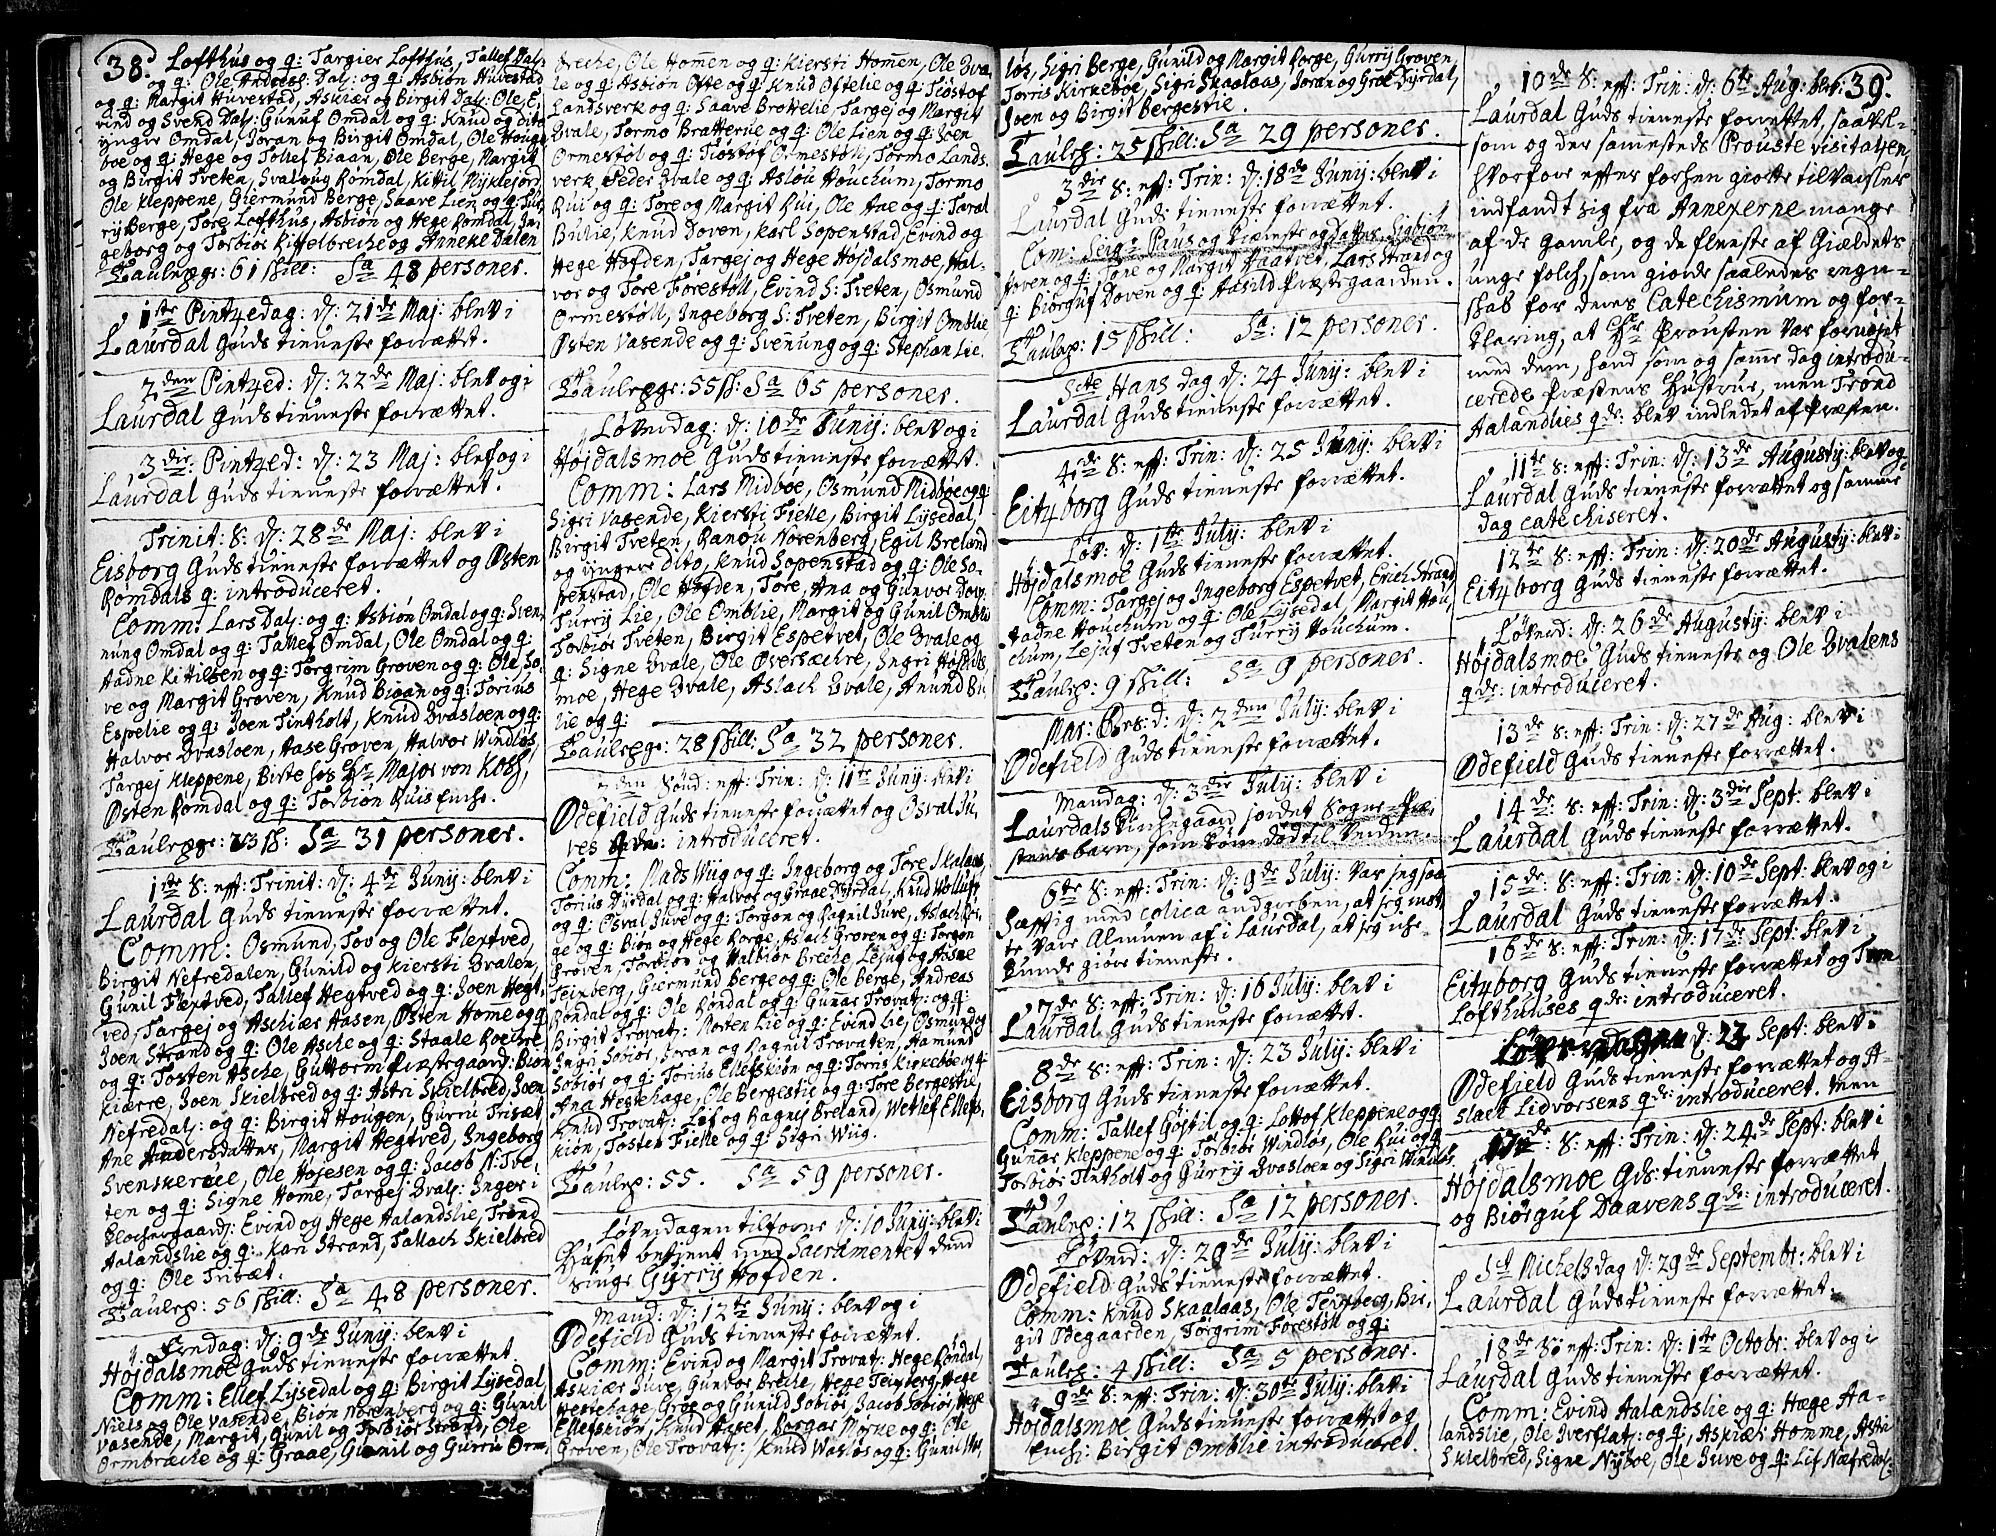 38. Lofthus og q: Targier Lofthus, Tallef Dal:
og q: Ole Andress: Dal: og q: Asbiøn Huvestad
og q: Margit Huvestad, Askiær og Birgit Dal: Ole, E,
vind og Svend Dal: Gunuf Omdal og q: Knud og dito
yngre Omdal, Joran og Birgit Omdal, Ole Houge
boe og q: Hege og Tollef Biaan, Ole Berge, Margit
og Birgit Tveten, Svalaug Romdal, Kittil Myklejord
Ole Kleppene, Giermund Berge, Saave Lien og q: Tur
rij Berge, Tore Lofthus, Asbiøn og Hege Romdal, In,
geborg og Torbiør Kittelbreche og Anneke Dalen
Taulpge: 61 skill: Sa 48 personer.
1ste Pintzedag: d: 21de Maj: blev i
Laurdal Guds tienneste forrættet.
2den Pintzed: d: 22de Maj: blev og i
Laurdal Guds tienneste forrættet.
3die: Pintzed: d: 23 Maj: blef og i
Laurdal Guds tienneste forrættet.
Trinit: S: d: 28de Maj: blev i
Eisborg Guds tienneste forrættet og Østen
Romdals q: introduceret.
Comm: Lars Dal: og q: Asbiøn Omdal og q: Sven
nung Omdal og q: Tallef Omdal, Ole Omdal og q:
Aadne Kittilsen og q: Torgrim Groven og q: Ole, So
ve og Margit Groven, Knud Bioan og q: Torius
Espelie og q: Joen Tintholt, Knud Qvasloen og q:
Halvor Qvasloen, Aase Groven, Halvor Windløs,
Targej Kleppene, Birte hos Hr Major von Koss,
Østen Romdal og q: Torbiøn Ruis fuche.
Taulpge: 23 s: Sa 31 personer.
1ste S: eft: Trinit: d: 4de Junij: blev i
Laurdal Guds tienneste forrættet.
Comm: Osmund, Tov og Ole Flextved,
Birgit Nefredalen, Gunild og Kiersti Qvalen,
Gunil Flextved, Tallef Hegtved og q: Joen Hegt,
ved, Targej og Aschiær Aasen, Østen Home og q
Joen Strand og q: Ole Asche og q: Staale Roeire,
og q: Tosten Asche, Guttorm Præstgaard: Biøn
Kiærre, Joen Skielbred og q: Astri Skielbred, Joen
Nefredal: og q: Birgit Hougen, Gurru Trisæt
Ane Andersdatter, Margit Hegtved, Ingeborg
Svenskerøie, Ole Hojesen og q: Jacob N: Tve,
ten og q: Signe Home, Targej Qval: Inger i
Klochergaard: Evind og Hege Aalandslie, Trond
Aalandslie og q: Kari Strand, Tallach Skielbred
og q: Ole Trisæt.
Taulpg: 56 skill: Sa 48 personer.
Fredag: d: 9de Junij: blev i
Højdalsmoe Guds tienneste forrættet
Comm: Ellef Lijsedal og q: Birgit Lijsedal
Niels og Ole Vasende, Biøn Norenberg og q: Gunil
Vasende, Margit, Gunil og Torbiør Strand, Ole
Ormbræche og q: Graae, Gunil og Gurru Orm,
breche, Ole Homen og q: Kiersti Homen, Ole Qva,
le og q: Asbiøn Ofte og q: Knud Oftelie og q: Tiostof
Landsverk og q: Saave Brottelie Targej og Margit
Qvale, Tormo Bratterue og q: Ole Lien og q: Joen
Ormestøl og q: Tiostof Ormestøll, Tormo Lands,
verk, Peder Qvale og q: Aslou Houchum, Tormo
Rui og q: Tore og Margit Rui, Ole Aae og q: Taral
Bielie, Knud Doven, Karl Sopenstad, Evind og
Hege Hofden, Targej og Hege Højdalsmoe, Hal,
vor og Tore Forestøll, Evind S: Tveten, Osmund
Ormestøll, Ingeborg S: Tveten, Birgit Omblie
Østen Vasende og q: Svenung og q: Stephan Lie.
Taulpge: 55 s: Sa 65 personer.
Løverdag: d: 10de Junij: blev og i
Højdalsmoe Guds tienneste forrættet.
Comm: Lars Midbøe, Osmund Midbøe og q
Sigri Vasende, Kiersti Fielle, Birgit Lijsedal,
Birgit Tveten, Ranou Norenberg, Egil Breland
og yngere Dito, Knud Sopenstad og q: Ole So-
penstad, Ole Hofden, Tore, Ana og Gunvor Dov,
Turry Lie, Ole Omblie, Margit og Gunil Omblie
Torbiør Tveten, Birgit Espetvet, Ole Qvale og
q: Signe Qvale, Ole Øversæchre, Ingri Højdals,
moe, Hege Qvale, Aslach Qvale, Anund Bi
lie og q:
Taulpge: 28 skill: Sa 32 personer.
2den Sønd: eft: Trin: d: 11te Junij: blev i
Ødefield Guds tienneste forrættet og Osval Ju,
ves qde: introduceret.
Comm: Mads Wiig og q: Ingeborg og Tore Skalaas,
Torius Husdal og q: Halvor og Graae Dyrdal, Knud Wollust
og q: Osval Juve og q: Torgon og Ragnil Juve, Aslach Ror,
ge og q: Biøn og Hege Rorge, Aslach Groven og q: Torgon
Groven, Torbiør og Halbiør Breche Lejuf og Aasne
Teixberg, Giermund Berge og q: Ole Berge, Andreas
Rondal og q: Ole Rondal og q: Gunar Trovat: og q:
Birgit Trovat: Mosten Lie og q: Evind Lie, Osmund og
Ingri Sobiør, Joran og Ragnil Trovatten, Aamund
Sobiør og q: Torius Ellefskiøn og q: Torris Kirkebøe og q
Ana Hegtehage, Ole Bergestie og q: Tore Bergestie,
Knud Trovat: Lof og Ragnij Breland, Wetlef Ellefs,
kiøn, Tosten Fielle og q: Sigri Wiig.
Taulpg: 55. Sa 59 personer.
Løverdagen tilforne d: 10 Junij: blev i
Huset betient med Sacramentet dend
singe Gijrrij Hofden.
Mand: d: 12te Junij: blev og i
Ødefield Guds tienneste forrættet.
Comm: Evind og Margit Trovat: Hege Rondal,
Askiær Juve, Gunvor Breche, Hege Teixberg, Hege
Hegtehage, Groe og Gunild Sobiør, Jacob Sobiør, Hege
Ellefskiøn, Knud Huset, Borgar Mørne og q: Ole
Groven, Ole Trovat: Knud Wasløs og q: Gunil Wis,
løs, Sigri Berge, Gunild og Margit Rorge, Gurrij Groven,
Torris Kirkebøe, Sigri Skaalaas, Joran og Groe Dyrdal,
Joen og Birgit Bergestie.
Taulpg: 25 skill: Sa 29 personer.
3die S: eft: Trin: d: 18de Junij: blev i
Laurdal Guds tienneste forrættet.
Com: Seigr Paus og Kiæreste og Datter, Sigbiøn
Hoven og q: Tore og Margit Haatvet, Lars Strand og
q: Biørguf Doven og q: Aasild Præstegaarden.
Taulpg: 15 skill: Sa: 12 personer.
Scte Hans dag d: 24 Junij: blev i
Laurdal Guds tienneste forrættet.
4de S: eft: Trin: d: 25 Junij: blev i
Eitzborg Guds tienneste forrættet.
Løv: d: 1ste Julij: blev i
Højdalsmoe Guds tienneste forrættet.
Comm: Targej og Ingeborg Espetvet, Erich Strand
Aadne Houchum og q: Ole Lijsedal, Margit Hou,
chum, Lejuf Tveten og Turrij Houchum.
Taulpg: 9 skill: Sa 9 personer.
Mar: Bes: d: d: 2den Julij: blev i
Ødefield Guds tienneste forrættet.
Mandag: d: 3die Julij: blev i
Laurdals Kirchegaard jordet Sogne-Præ
stens barn, som kom død til Verden.
6te S: eft: Trin: d: 9de Julij: var jeg saa
hæftig med colica andgreben, at jeg mot
te vare Almuen af i Laurdal, at jeg iche
kunde giøre tieneste.
7de S: eft: Trin: d: 16 Julij: blev i
Laurdal Guds tienneste forrættet.
8de S: eft: Trin: d: 23 Julij: blev i
Eisborg Guds tienneste forrættet.
Comm: Tallef Gøjtil og q: Lottof Kleppene og q
Gunar Kleppene og q: Torbiør Windløs, Ole Rui og q
Torbiør Tintholt og Gurrij Qvasloen og Sigri Windløs
Taulpg: 12 skill: Sa 12 personer.
Løverd: d: 29de Julij: blev i
Ødefield Guds tienneste forrættet.
Comm: Knud Skaalaas, Ole Teixberg, Bir,
git Ødegaarden, Torgrim Forestøll og q:
Taulpg: 4 skill: Sa 5 personer.
9de S: eft: Trin: d: 30te Julij: blev i
Højdalsmoe Guds tienneste forrættet og
Ench: Birgit Omblie introduceret.
10de S: eft: Trin: d: 6te Aug: blev i 39.
Laurdal Guds tienneste forrættet, saavel-
som og der samesteds Prouste visitatzen,
hvorfore effter forhen giorte tilvarsler
indfandt sig fra Annexerne mange
af de Gamle, og de fleeste af Gieldets
unge folch, som giorde saaledes regn-
skab for deres Catechismum og for-
klaring, at Hr Prousten var fornøjet
med dem, hand som og samme dag introdu-
cerede Præstens Hustrue, men Trond
Aalandlies qde: blev indledet af Præsten.
11te S: eft: Trin: d: 13de Augustij: blev og i
Laurdal Guds tienneste forrættet og samme
dag catechiseret.
12te S: eft: Trin: d: 20de Augustij: blev i
Eitzborg Guds tienneste forrættet.
Løverd: d: 26de Augustij: blev i
Højdalsmoe Guds tienneste og Ole Qvalens
qde: introduceret.
13de S: eft: Trin: d: 27de Aug: blev i
Ødefield Guds tienneste forrættet.
14de S: eft: Trin: d: 3die Sept: blev i
Laurdal Guds tienneste forrættet.
15de: S: eft: Trin: d: 10de Sept: blev og i
Laurdal Guds tienneste forrættet.
16de S: eft: Trin: d: 17de Sept: blev i
Eitzborg Guds tienneste forrættet og
Lofthuuses qde: introduceret.
Løverdagen d: 23 Sept: blev i
Ødefield Guds tienneste forrættet og A-
slach Lidvorsens qde: introduceret. Men
17de: S: eft: Trin: d: 24de Sept: blev i
Højdalsmoe Gds tienneste forrættet
og Biørguf Daavens qde: introduceret.
Sct Michels dag d: 29de Septembr: blev i
Laurdal Guds tienneste forrættet.
18de S: eft: Trin: d: 1ste Octobr: blev og i
Laurdal Guds tienneste forrættet.
Comm: Evind Aalandslie og q: Hæge Aa-
landslie, Ole Iverflat: og q, Askiær Homme, Astri
Skielbred, Signe Nyboe, Ole Juve og q: Lif Næfredal: